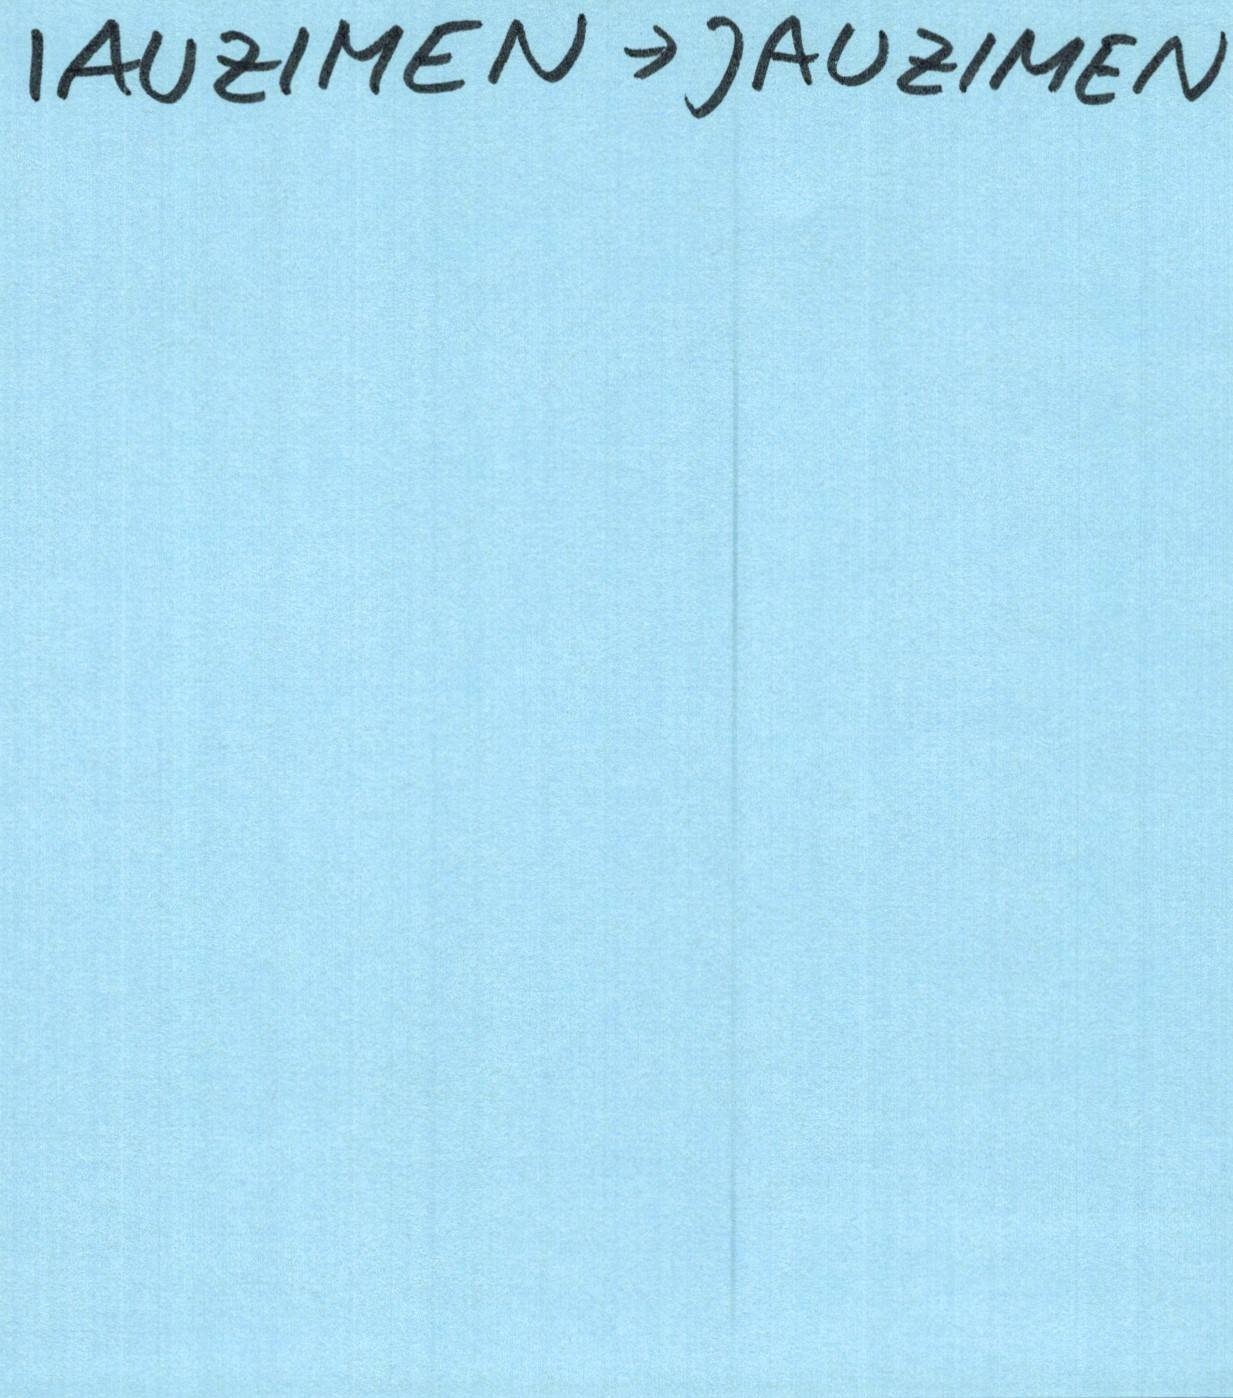 IAUZIMEN → JAUZIMEN